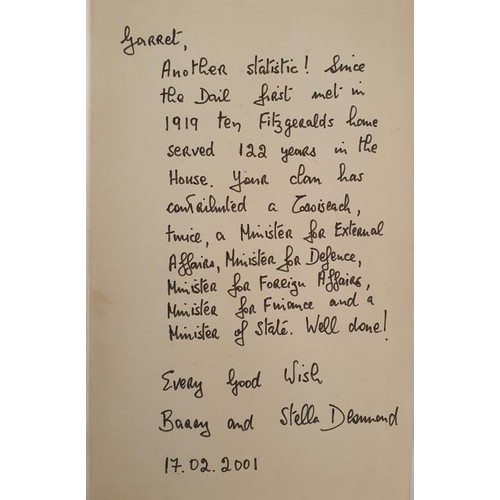 Garret,
Another statistic! Since
the Dail first met in
1919 ten Fitzgeralds have
served 122 years in the
House. Your clan has
contributed a Taoiseach,
twice, a Minister for External
Affairs, Minister for Defence,
Minister for Foreign Affairs,
Minister for Finance and a
Minister of State. Well done!
Every Good Wish
Barry and Stella Desmond
17.02.2001